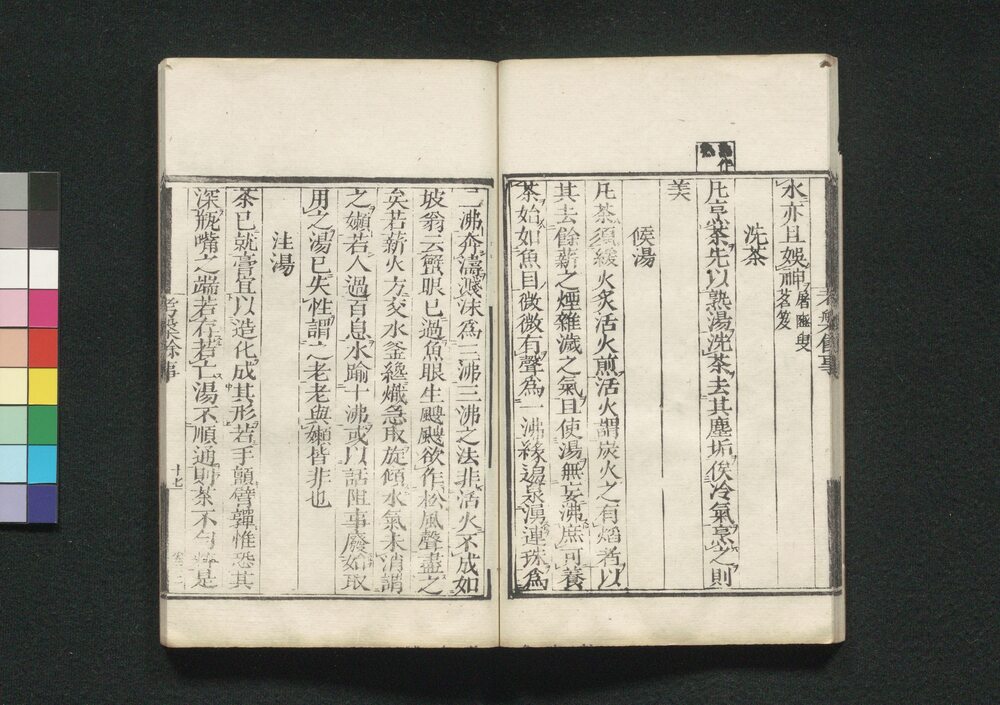 水亦且娛神
屠豳叟
茗笈
洗茶
凡烹茶先以熟湯洗茶去其塵垢俟冷氣烹之則
美
候湯
凡茶須緩火炙活火煎活火謂炭火之有熖者以
其去餘薪之煙雜濊之氣且使湯無妄沸庶可養
茶始如魚目微微有聲爲一沸緣邉泉湧連珠爲
二沸奔濤濺沫爲三沸三沸之法非活火不成如
坡翁云蟹眼已過魚眼生颼颼欲作松風聲盡之
矣若薪火方交水釜纔熾急取旋傾水氣未消謂
之嬾若人過百息水踰十沸或以話阻事廢始取
用之湯已失性謂之老老與嬾皆非也
注湯
茶已就膏宜以造化成其形若手顫臂嚲惟恐其
深瓶嘴之端若存若亡湯不順通則茶不勻是
考槃餘事
十七